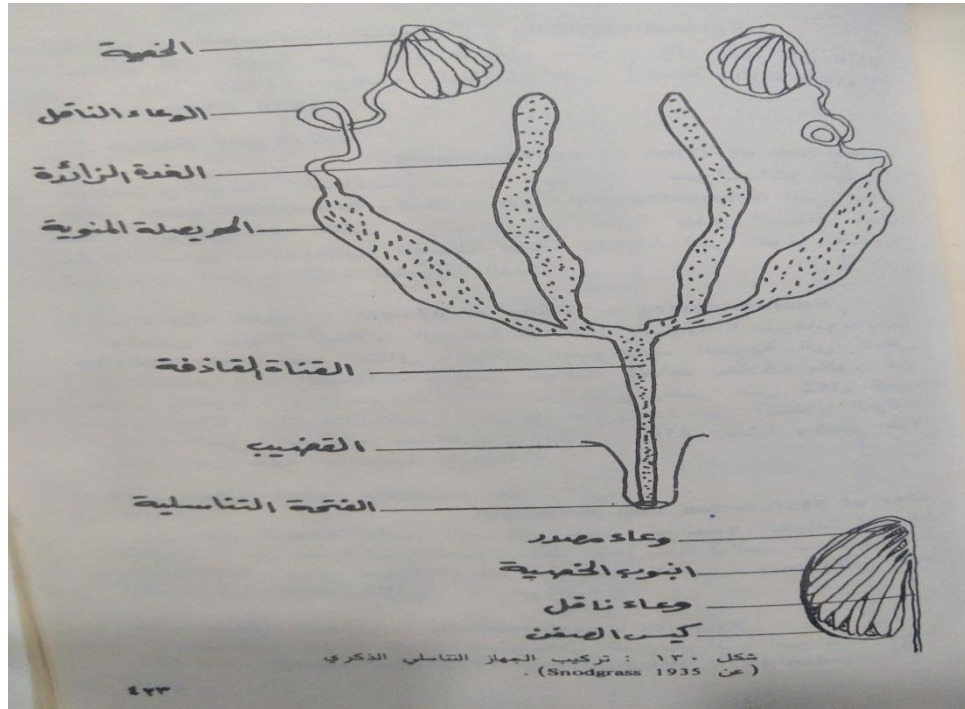 الخصية
الوعاء الناقل
الغدة الزائدة
الحويصلة المنوية
القناة القاذفة
القضيب
الفتحة التناسلية
وعاء مصدر
انبوب الخصية
وعاء ناقل
كيس الصفن
شكل ١٣٠ : تركيب الجهاز التناسلي الذكري
(عن Snodgrass 1935).
٤٢٣